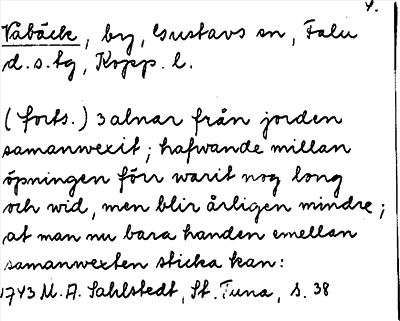 4.
Vabäck, by, Gustavs sn, Falu
d.s.tg, Kopp. l.
(forts.) 3 alnar från jorden
samanwexit; hafwande millan
öpningen förr warit nog long
och wid, men blir årligen mindre;
at man nu bara handen emellan
samanwexten sticka kan:
1743 M.A. Sahlstedt, St. Tuna, s. 38